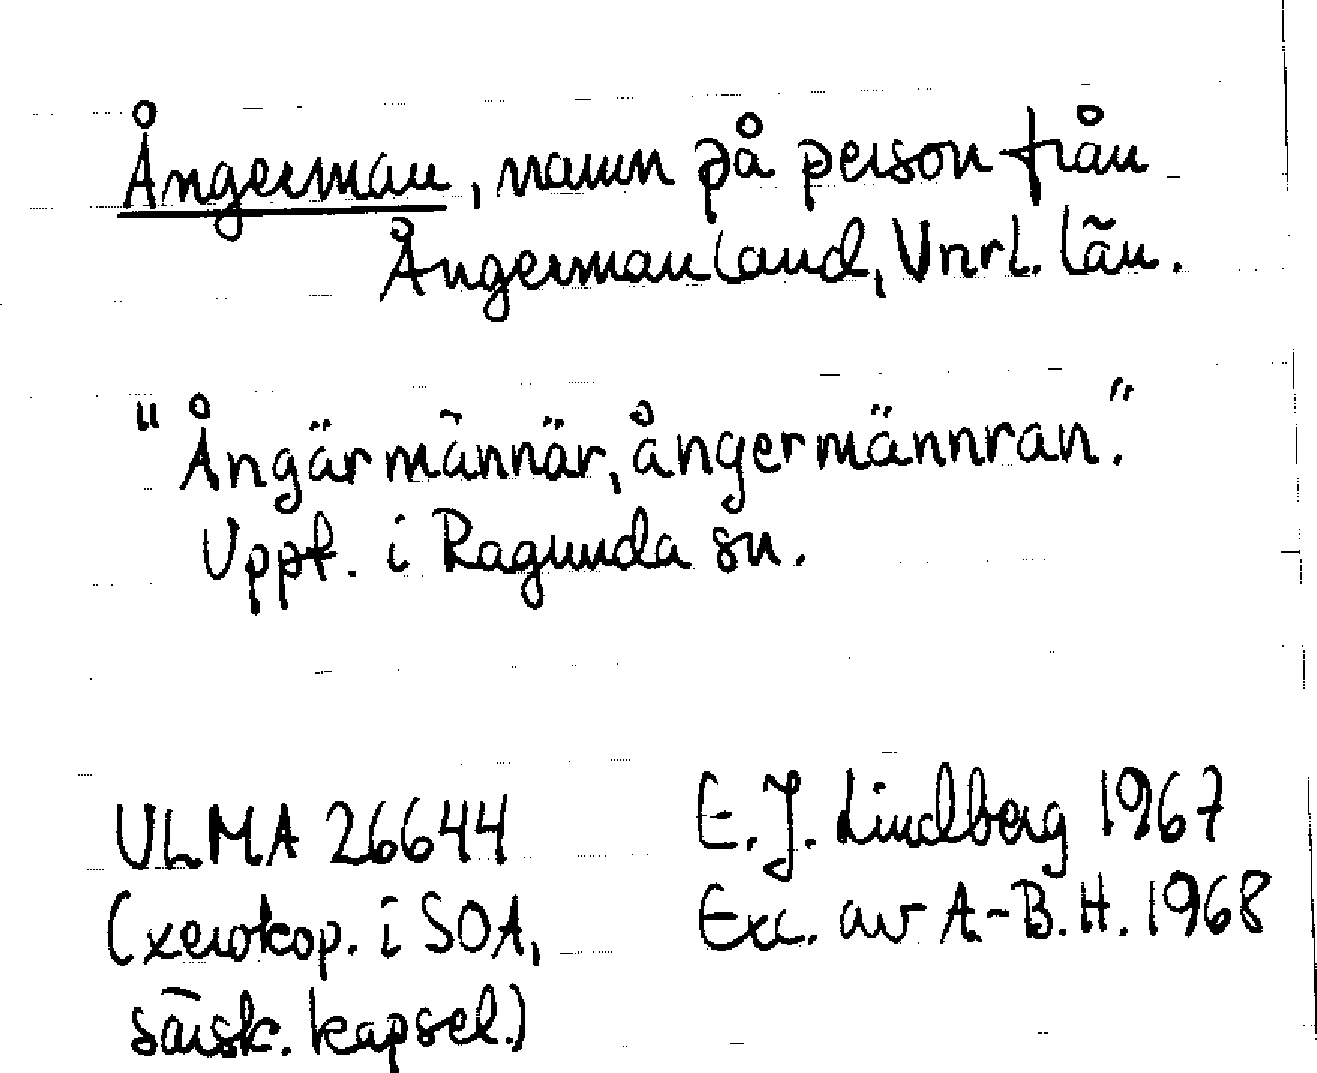 Ångerman, namn på person från
Ångermanland, Vnrl. län.
"Ångärmännär, ångermännran."
Uppt. i Ragunda sn.
ULMA 26644
(xerokop. i SOA,
särsk. kapsel.)
E. J. Lindberg 1967
Exc. av A-B. H. 1968